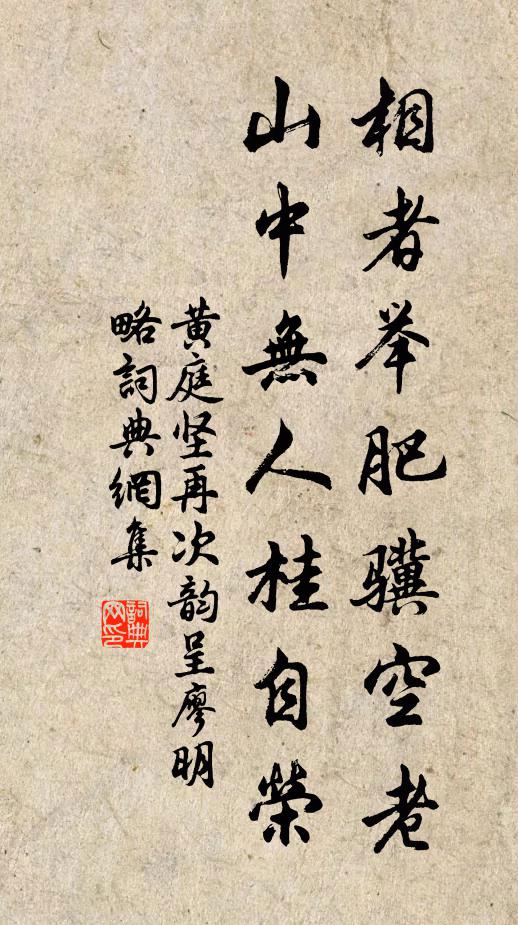 相者举肥骥空老
山中無人桂自榮
黄庭坚再次韵呈廖明
略詞典網集
詞典网印